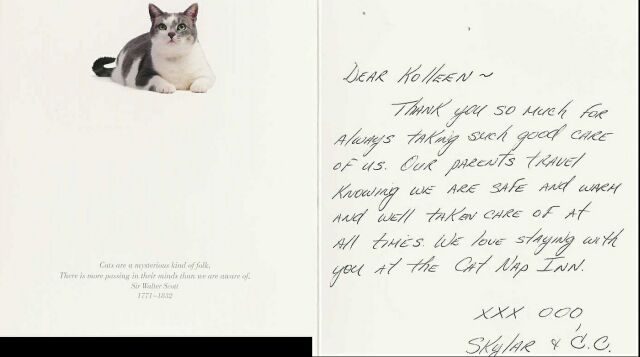 Cats are a mysterious kind of folk.
There is more passing in their minds than we are aware of.
Sir Walter Scott
1771–1832
Dear Kolleen ~
Thank you so much for
always taking such good care
of us. Our parents travel
knowing we are safe and warm
and well taken care of at
all times. We love staying with
you at the Cat Nap Inn.
XXX OOO
Skylar & C.C.